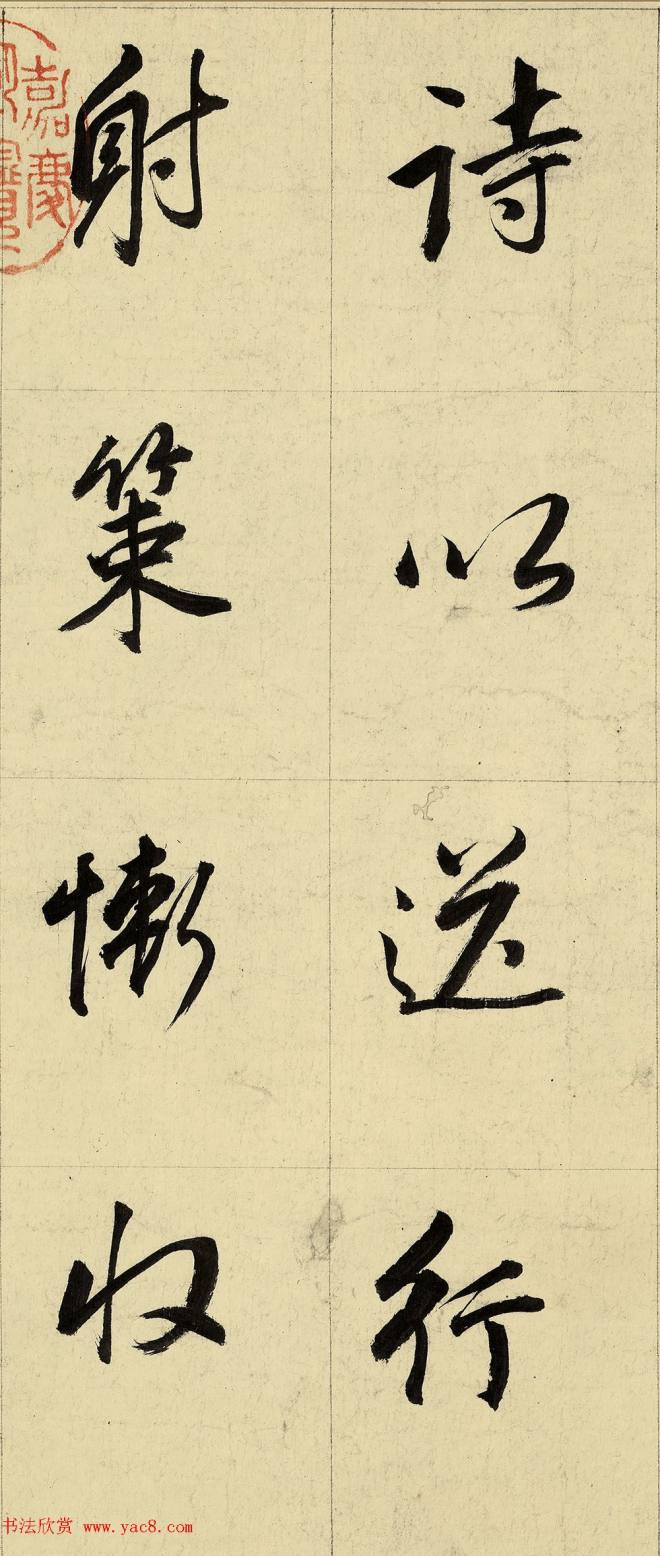 詩以送行
射策慚收
嘉慶
书法欣赏 www.yac8.com